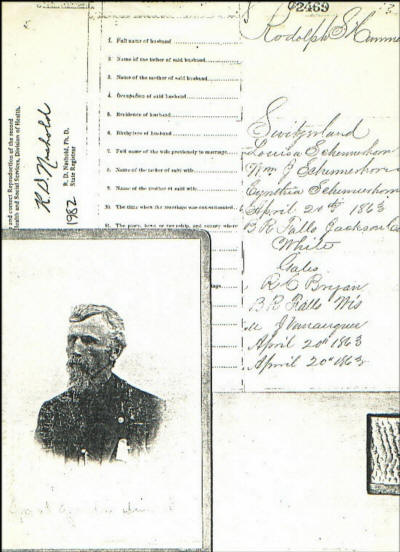 02469
Rodolph S
1. Full name of husband
2. Name of the father of said husband
3. Name of the mother of said husband
4. Occupation of said husband
5. Residence of husband
6. Birthplace of husband
Switzerland
7. Full name of the wife previously to marriage
Louisa Schermerhorn
8. Name of the father of said wife
Wm J Schermerhorn
9. Name of the mother of said wife
Cynthia Schermerhorn
10. The time when the marriage was consummated
April 20th 1863
11. The place, town or township, and county where
B R Falls Jackson Co
White
Gales
R C Bryan
B R Falls Wis
April 20th 1863
April 20th 1863
and correct Reproduction of the record
Health and Social Services, Division of Health.
R D Nashold
R. D. Nashold, Ph. D.
State Registrar
1982